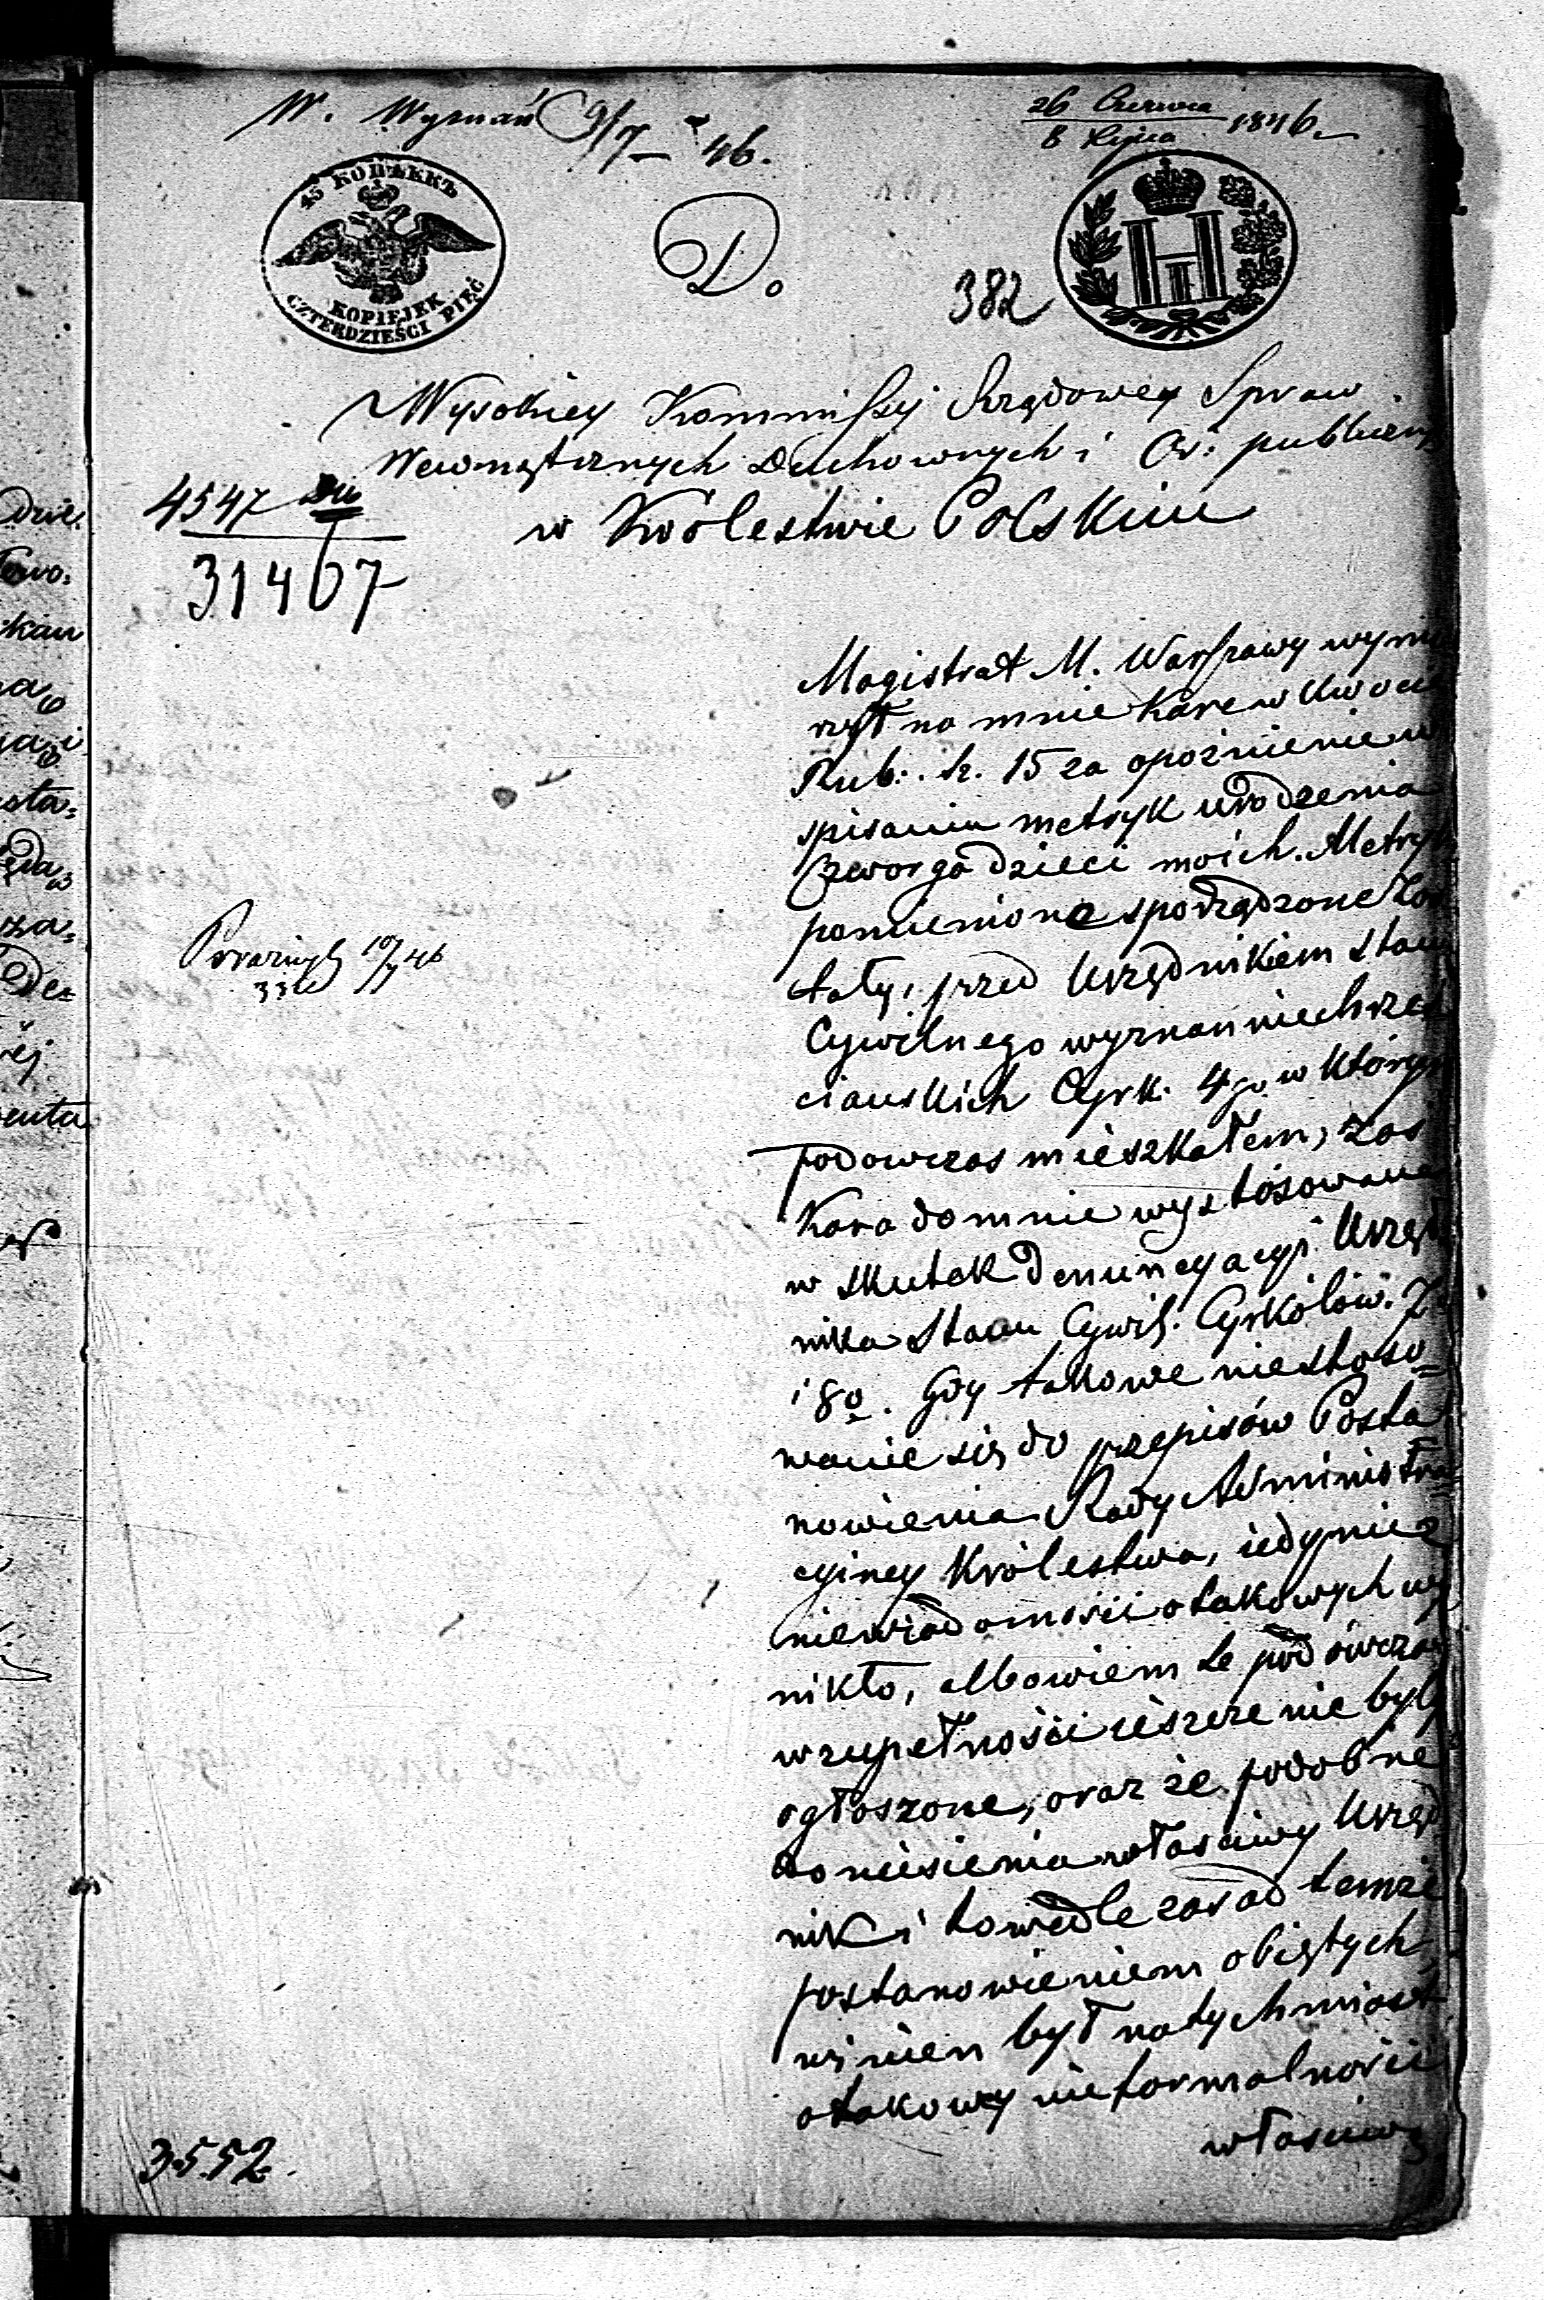 W. Wyznań 9/7 - 46.
26 Czerwca
8 Lipca 1846.
45 КОПѢЕКЪ
KOPIEJEK
CZTERDZIEŚCI PIĘĆ
Do
382
Wysokiey Kommissyi Rządowey Spraw
Wewnętrznych Duchownych i Oś: publiczn:
w Królestwie Polskim
4547
31467
Magistrat M. Warszawy wymie
rzył na mnie karę w kwocie
Rub: sr. 15 za opóźnienie w
spisaniu metryk urodzenia
Czworga dzieci moich. Metryki
pomienione sporządzone zos
tały, przed Urzędnikiem stanu
Cywilnego wyznań niechrześ
ciańskich Cyrk. 4go w którym
podowczas mieszkałem, zaś
Kara do mnie wystósowana
w skutek denuncyacyi Urzęd
nika Stanu Cywil. Cyrkółów. 7
i 8o. Gdy takowe niestoso=
wanie się do przepisów Posta
nowienia Rady Administra
cyiney Królestwa, iedynie z
niewiadomości o takowych wy
nikło, albowiem te podówczas
w zupełności ieszcze nie były
ogłoszone, oraz że podobne
doniesienia właściwy Urzęd
nik i to wedle zasad temże
postanowieniem obiętych,
winien był natychmiast
o takowey nieformalności
właściwą
3552.